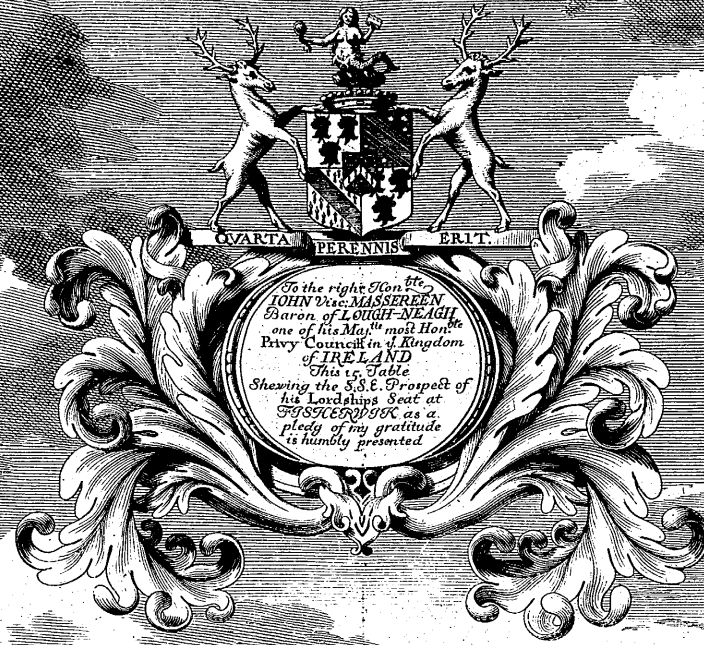 QVARTA PERENNIS ERIT.
To the right Hon.ble
IOHN Visc: MASSEREEN
Baron of LOUGH-NEAGH
one of his Ma.ties most Hon.ble
Privy Councill in y.e Kingdom
of IRELAND
This 15. Table
Shewing the S.S.E. Prospect of
his Lordships Seat at
FISHERWIK as a
pledg of my gratitude
is humbly presented